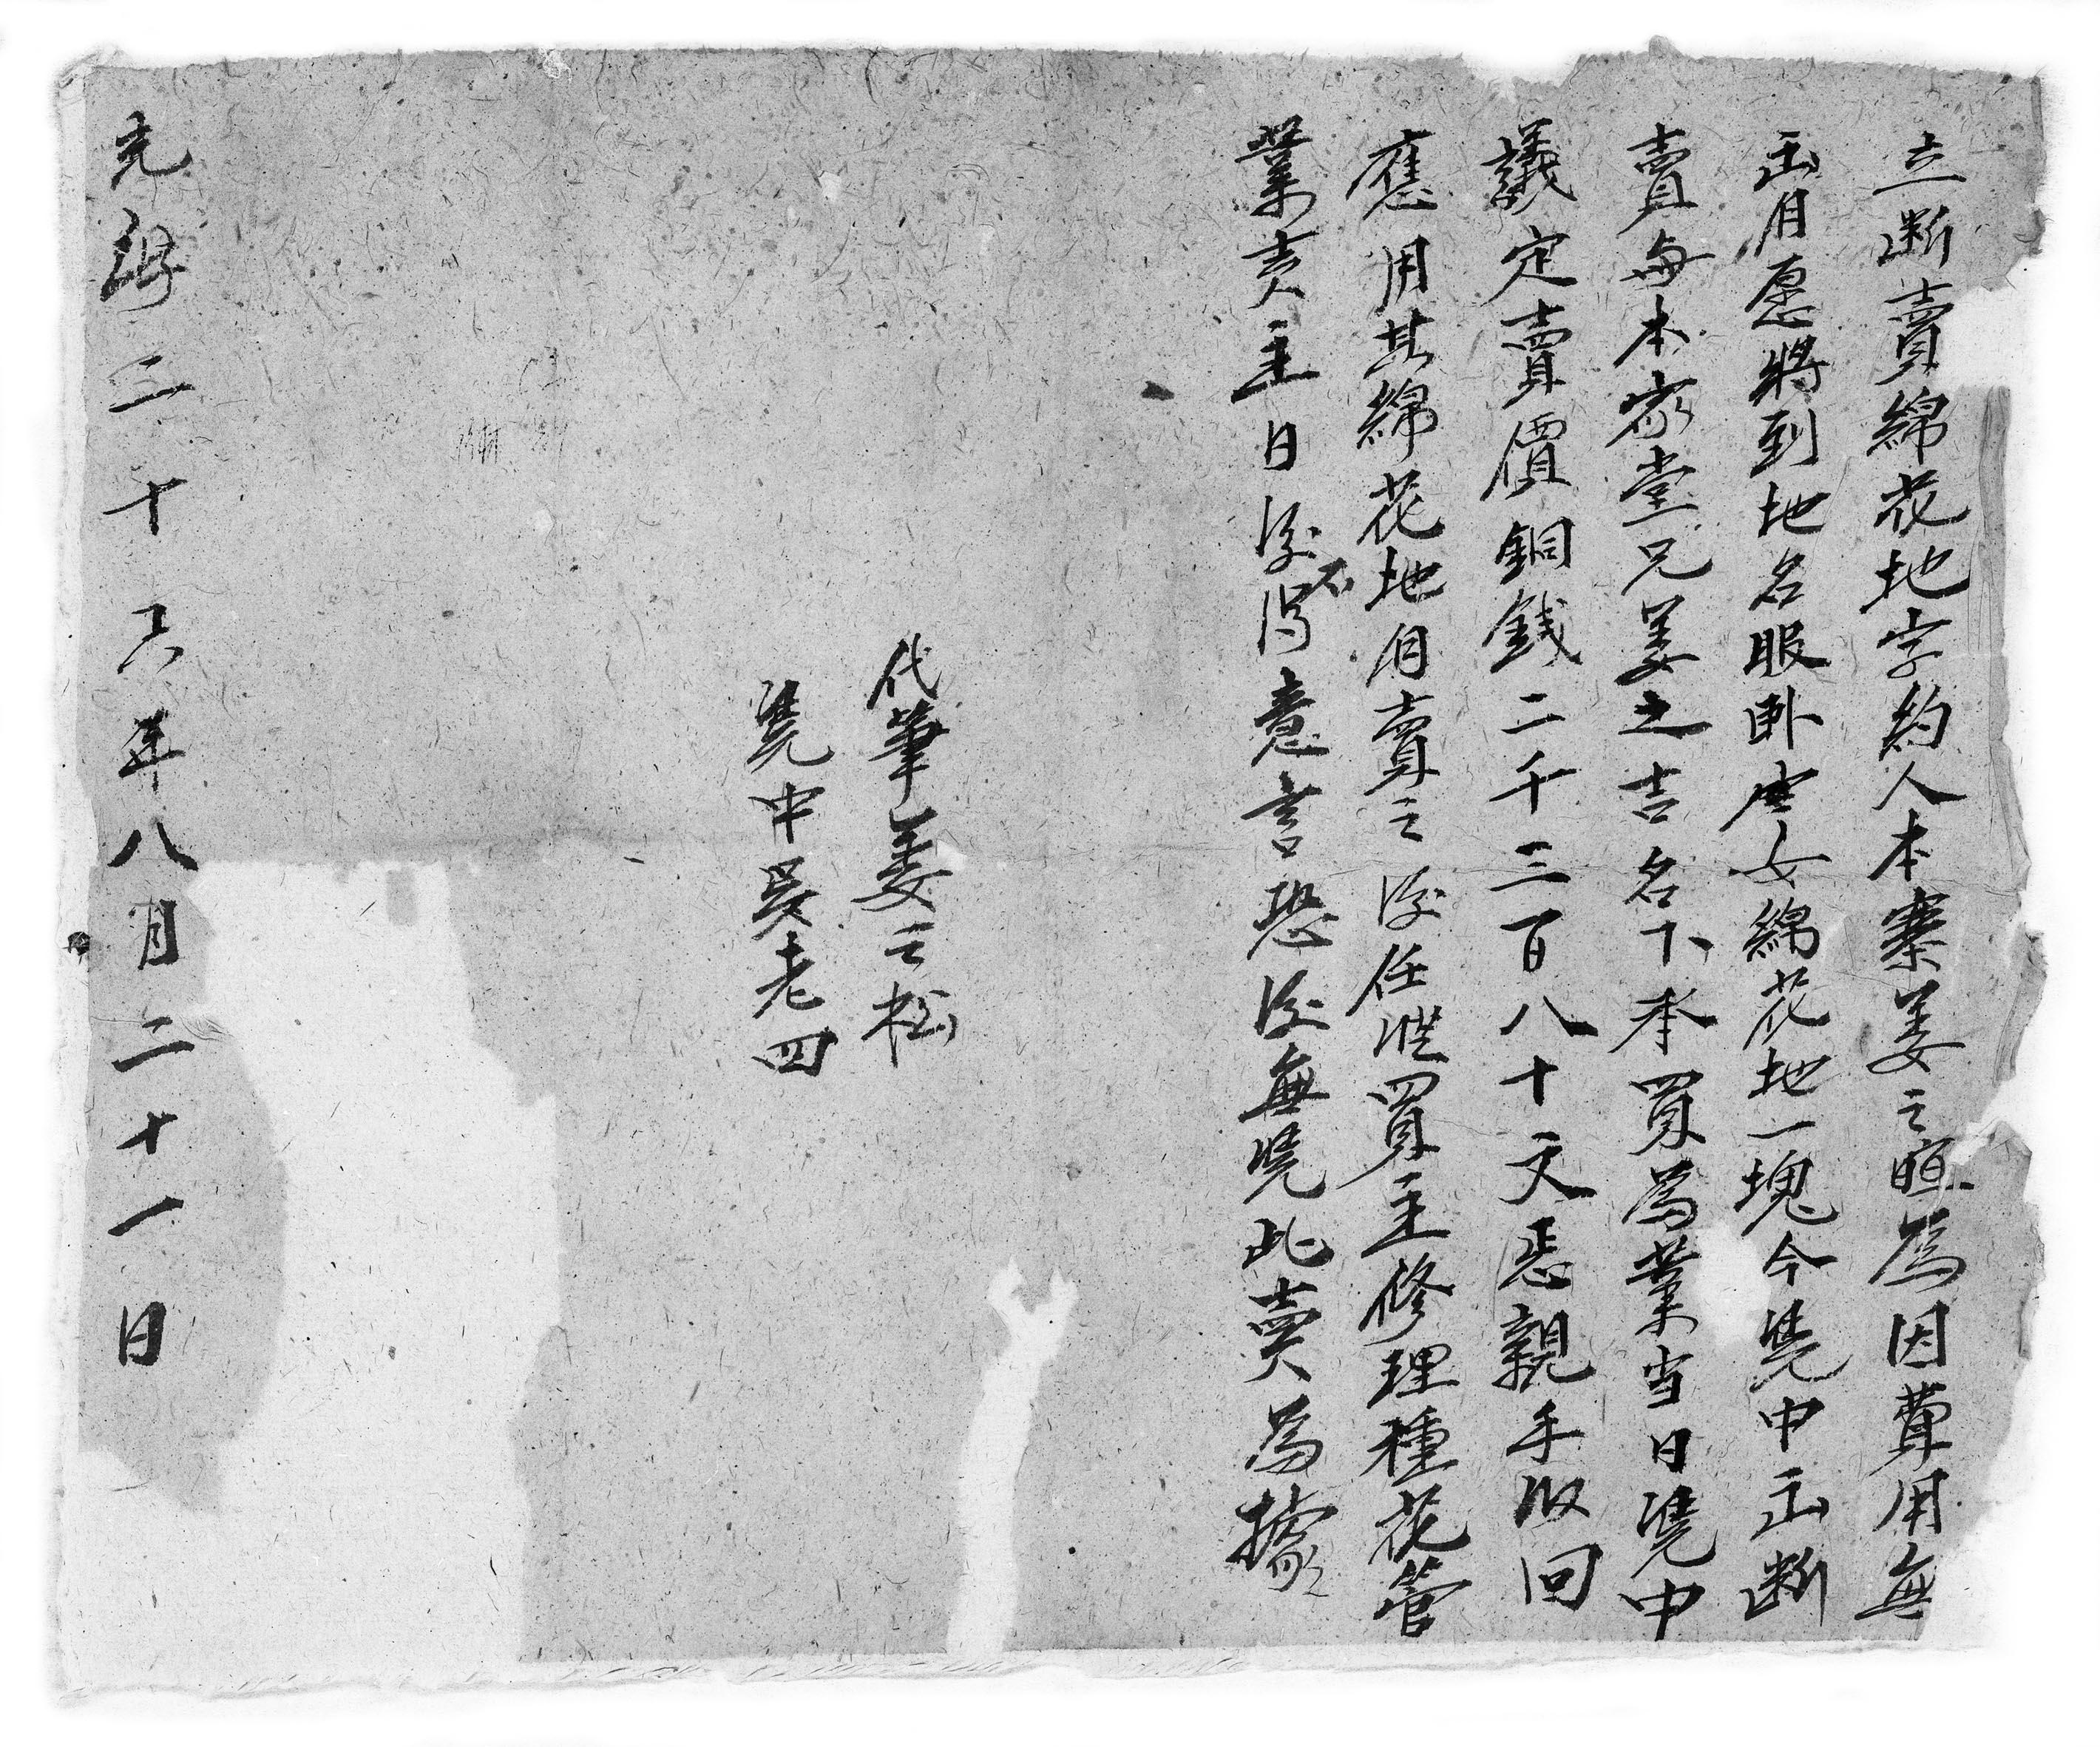 立断賣綿花地字約人本寨姜之暄為因費用無
出自愿將到地名眼卧坐女綿花地一塊今凴中出断
賣與本家堂兄姜之吉名下承買為業当日凴中
議定賣價銅錢二千三百八十文恁親手收回
應用其綿花地自賣之後任從買主修理種花管
業賣主日後不得意言恐後無凴此賣為據
代筆姜之松
凴中吳老四
光緒二十六年八月二十一日